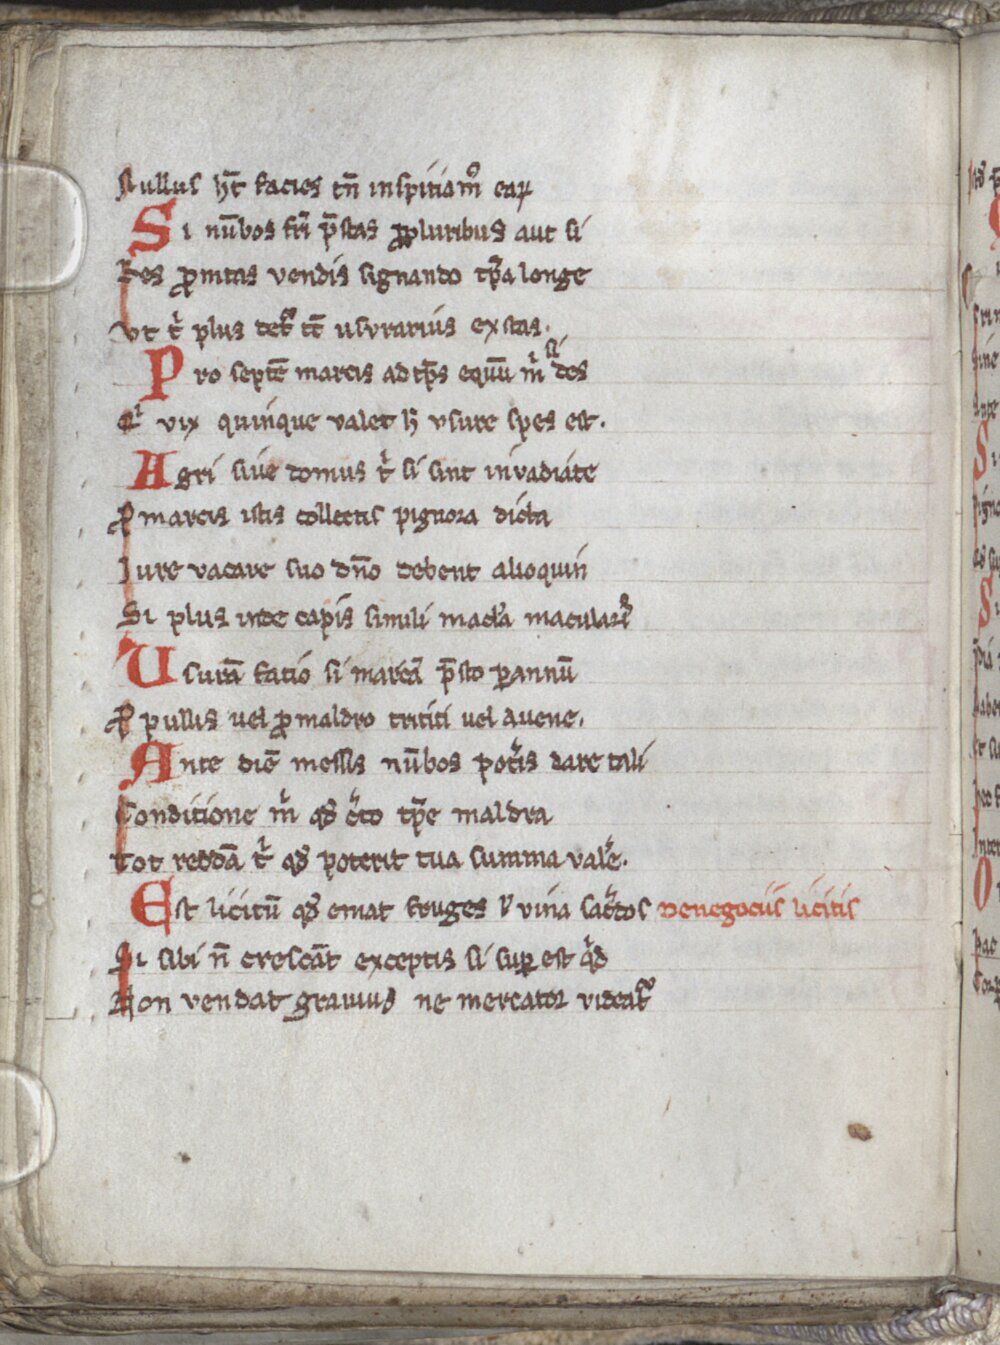 Nullus hr̄ facies tn̄ inspitiam᷒ eaꝝ
Si nūbos fr̄i p̄stas ꝓpluribus aut si
Res ꝓmitas vendis signando tp̄a longe
Vt t̾ plus det᷒ tē usurarius exstas.
Pro septē marcis ad tp̄s equū m̾ si des
Qͥ vix quinque valet h̄ vsure spes est.
Agri siue domus t̾ si sint inuadiate
P marcis istis collectis pignora dicta
Iure vacare suo dn̄o debent alioquin
Si plus inde capis simili macl̾a macular᷒
Usurā facio si marcā p̄sto ꝑannū
P pullis uel ꝓmaldro tritici uel auene.
Ante diē messis nūbos pot̾is dare tali
Conditione m̾ qd̄ c̾to tp̄e maldra
Tot reddā t̾ qd̄ poterit tua summa val̾e.
Est licitū qd̄ emat fruges ł vina sac̾dos De negociis licitis
Si sibi n̄ crescāt exceptis si suꝑest qd̾
Non vendat grauius ne mercator videat᷒